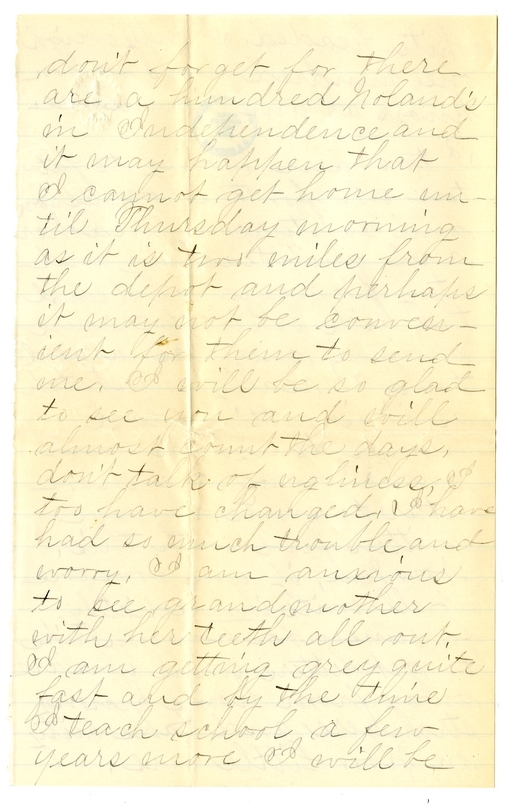 don't forget for there
are a hundred Noland's
in Independence and
it may happen that
I cannot get home un-
til Thursday morning
as it is two miles from
the depot and perhaps
it may not be conven-
ient for them to send
me. I will be so glad
to see you and will
almost count the days.
don't talk of ugliness, I
too have changed. I have
had so much trouble and
worry. I am anxious
to see grandmother
with her teeth all out.
I am getting grey quite
fast and by the time
I teach school a few
years more I will be